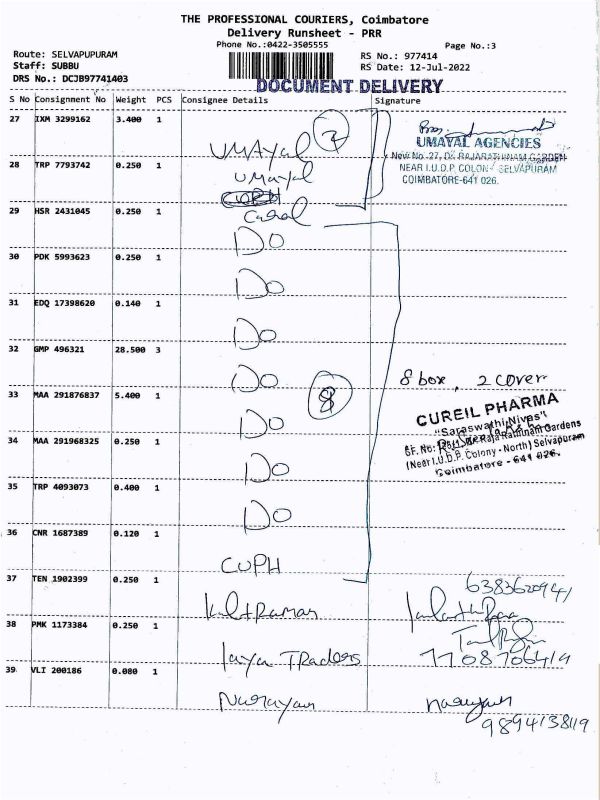 THE PROFESSIONAL COURIERS, Coimbatore
Delivery Runsheet - PRR
Phone No.:0422-3505555
Page No.:3
Route: SELVAPUPURAM
RS No.: 977414
Staff: SUBBU
RS Date: 12-Jul-2022
DRS No.: DCJB97741403
DOCUMENT DELIVERY
S No Consignment No Weight PCS Consignee Details Signature
27 IXM 3299162 3.400 1
UMAYal 2
UMAYAL AGENCIES
New No. 27, Dr. RAJARATHINAM GARDEN
NEAR I.U.D.P. COLONY SELVAPURAM
COIMBATORE-641 026.
28 TRP 7793742 0.250 1
UMayal
29 HSR 2431045 0.250 1
DO
30 PDK 5993623 0.250 1
DO
31 EDQ 17398620 0.140 1
DO
32 GMP 496321 28.500 3
DO
8
8 box, 2 cover
33 MAA 291876837 5.400 1
DO
CUREIL PHARMA
"Saraswathi Nivas"
Raja Rathinam Gardens
(Near I.U.D.P. Colony - North) Selvapuram
Coimbatore - 641 026.
34 MAA 291968325 0.250 1
DO
35 TRP 4093073 0.400 1
DO
36 CNR 1687389 0.120 1
CUPH
37 TEN 1902399 0.250 1
6383620941
38 PMK 1173384 0.250 1
Jaya Traders
7708706419
39 VLI 200186 0.080 1
Narayan
narayan
9894138119